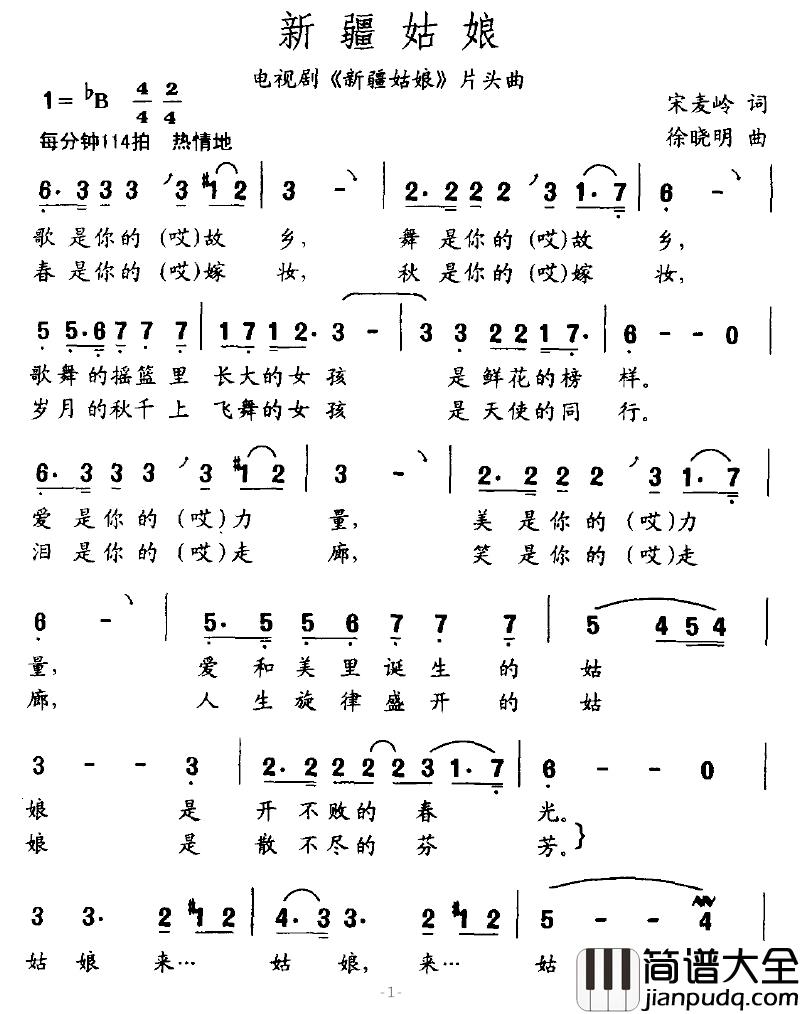 新疆姑娘
电视剧《新疆姑娘》片头曲
1= ♭B 4/4 2/4
宋麦岭 词
每分钟114拍 热情地
徐晓明 曲
6. 3 3 3 3 #1 2 | 3 - | 2. 2 2 2 3 1. 7 | 6 -
歌是你的(哎)故乡, 舞是你的(哎)故乡,
春是你的(哎)嫁妆, 秋是你的(哎)嫁妆,
5 5. 6 7 7 7 | 1 7 1 2. 3 - | 3 3 2 2 1 7. | 6 - - 0
歌舞的摇篮里 长大的女孩 是鲜花的榜样。
岁月的秋千上 飞舞的女孩 是天使的同行。
6. 3 3 3 3 #1 2 | 3 - | 2. 2 2 2 3 1. 7
爱是你的(哎)力量, 美是你的(哎)力
泪是你的(哎)走廊, 笑是你的(哎)走
6 - | 5. 5 5 6 7 7 7 | 5 4 5 4
量, 爱和美里诞生的姑
廊, 人生旋律盛开的姑
3 - - 3 | 2. 2 2 2 2 3 1. 7 | 6 - - 0
娘 是开不败的春光。
娘 是散不尽的芬芳。}
3 3. 2 #1 2 | 4. 3 3. 2 #1 2 | 5 - - 4
姑娘来… 姑娘,来… 姑
简谱大全
jianpudq.com
-1-